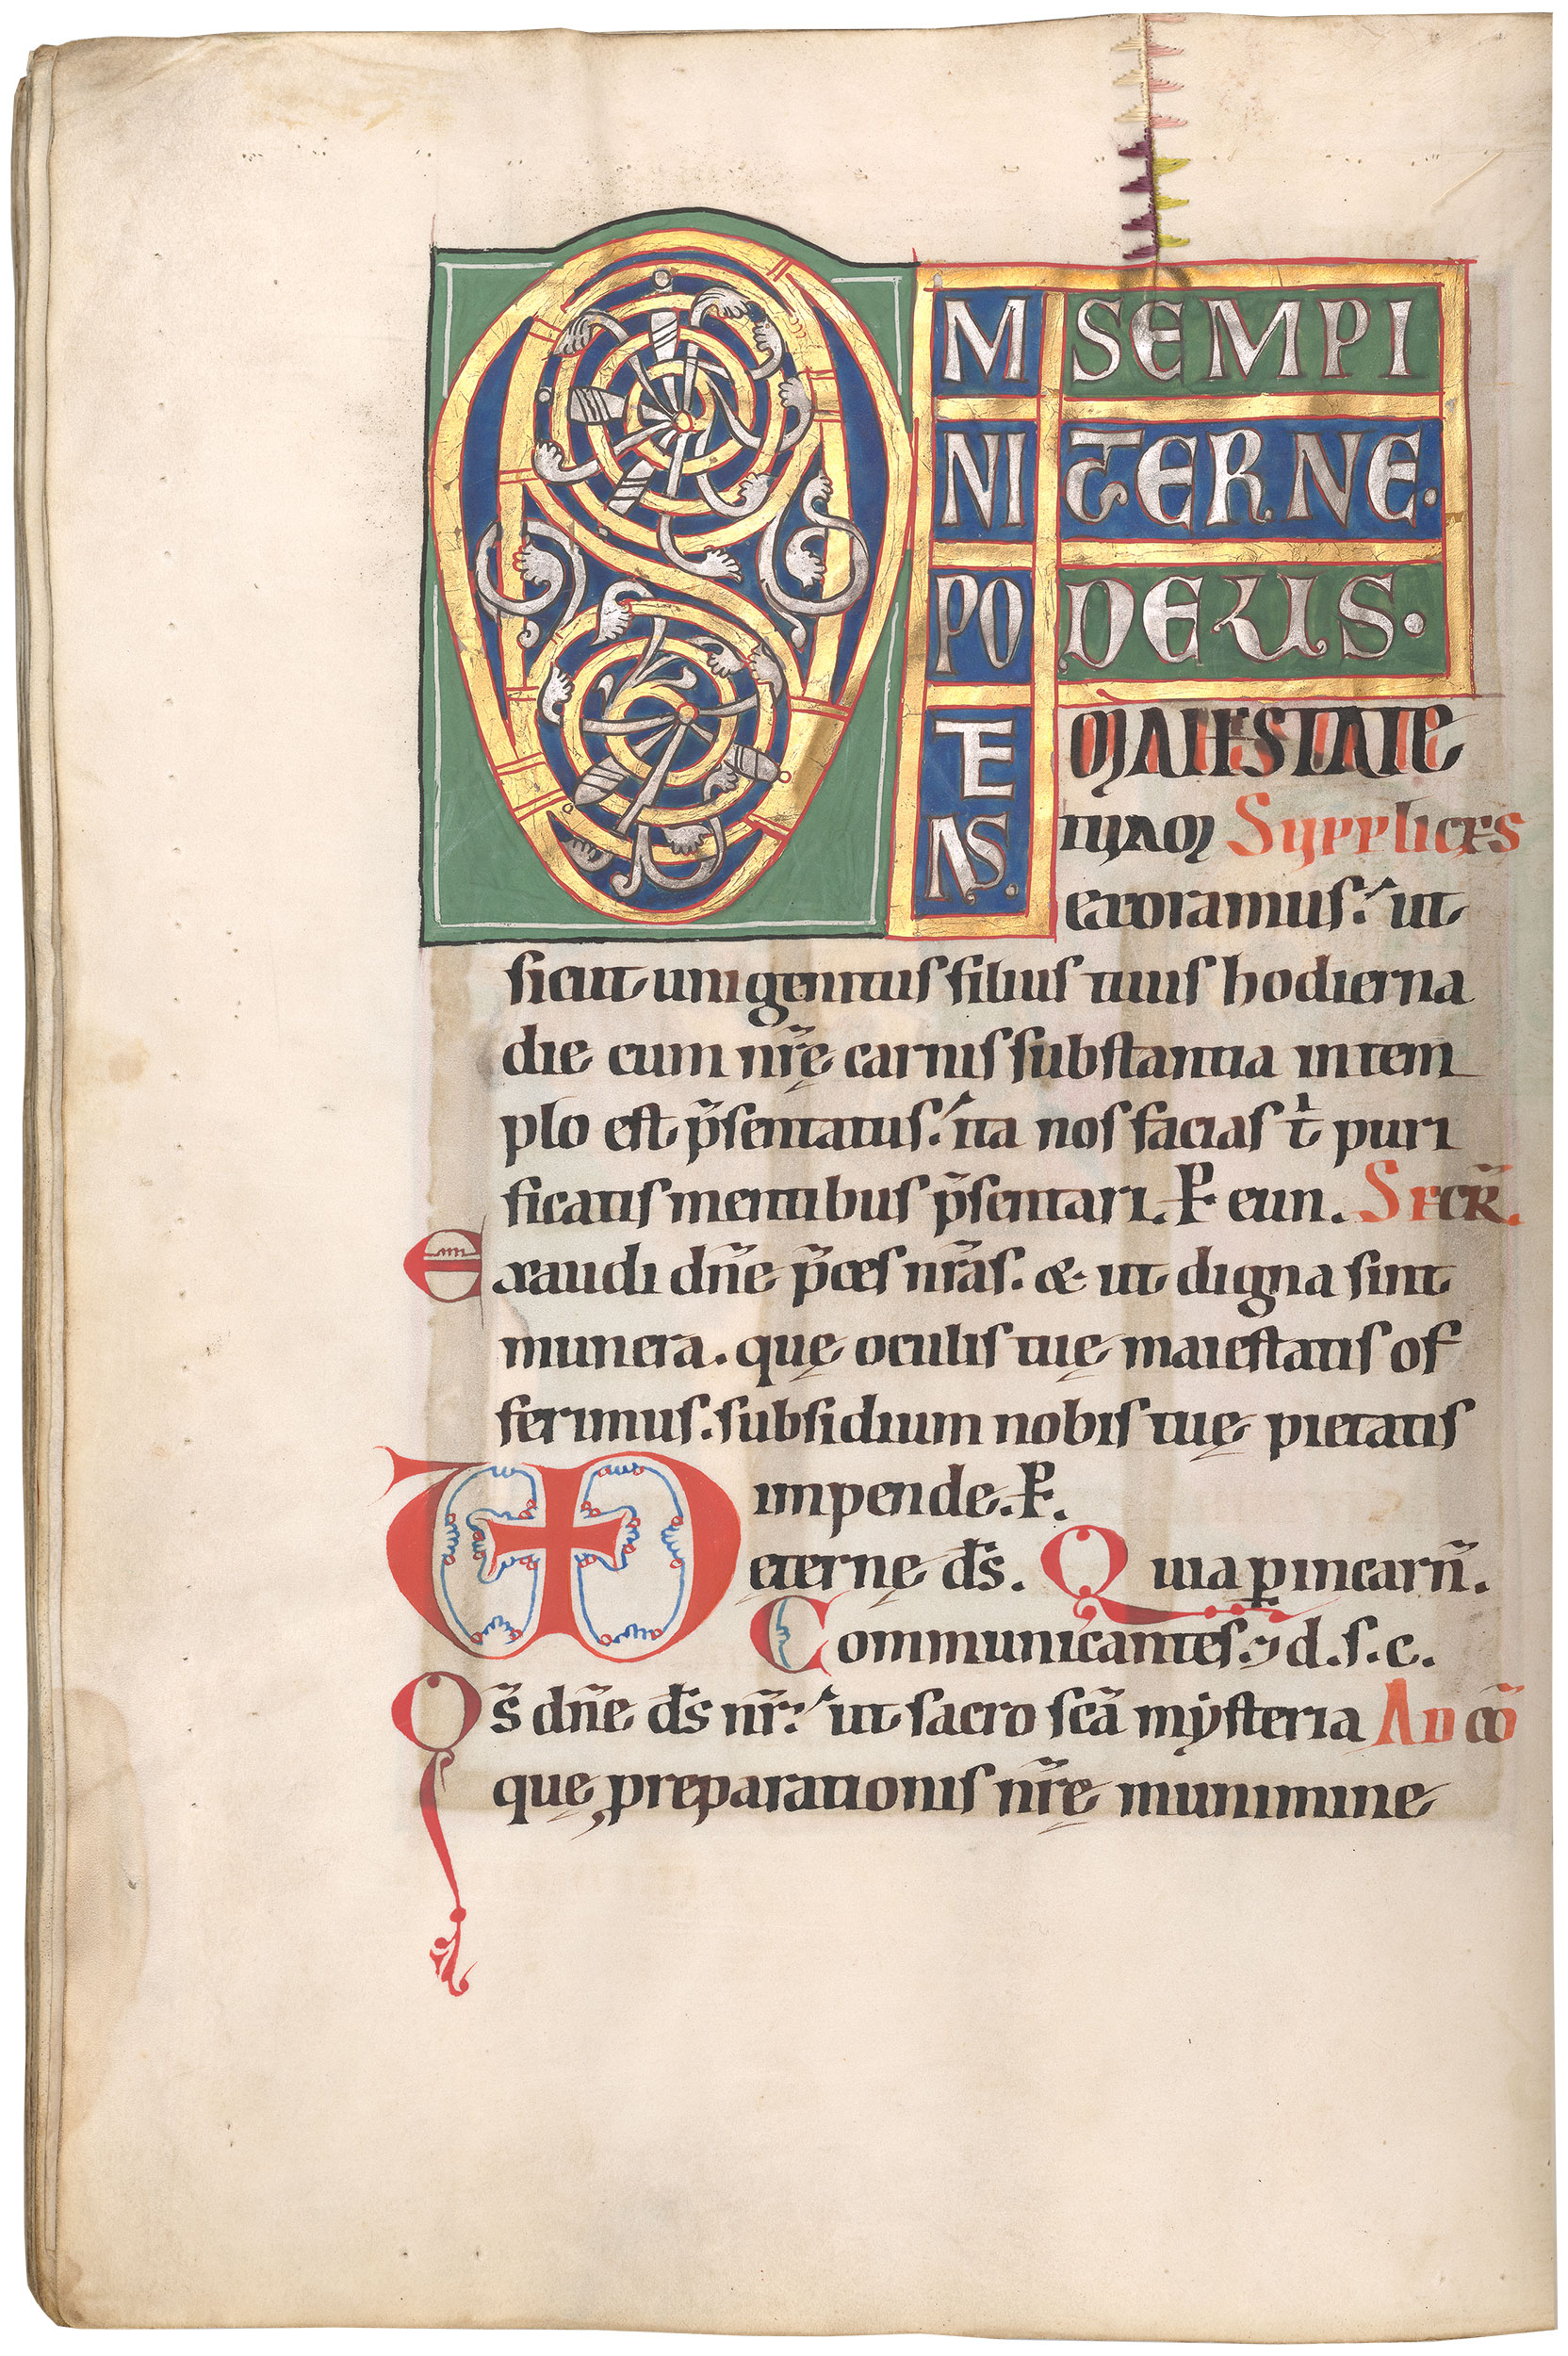 OM SEMPI
NI TERNE.
PO DEUS.
TE MAIESTATE
NS. TUAM Supplices
exoramus. ut
sicut unigenitus filius tuus hodierna
die cum nr̃ę carnis substantia in tem
plo est p̃sentatus. ita nos facias t̾ puri
ficatis mentibus p̃sentari. P eun. SECR̃.
Exaudi dñe p̃ces nr̃as. & ut digna sint
munera. quę oculis tuę maiestatis of
ferimus. subsidium nobis tuę pietatis
impende. P.
VD eternę d̄s. Quia ꝑ incarñ.
Communicantes. ⁊ d. s. c.
Qs̃ dñe d̄s nr̃. ut sacrosc̃a mẏsteria AD CÕ
quę ꝓ reparationis nr̃ę munimine